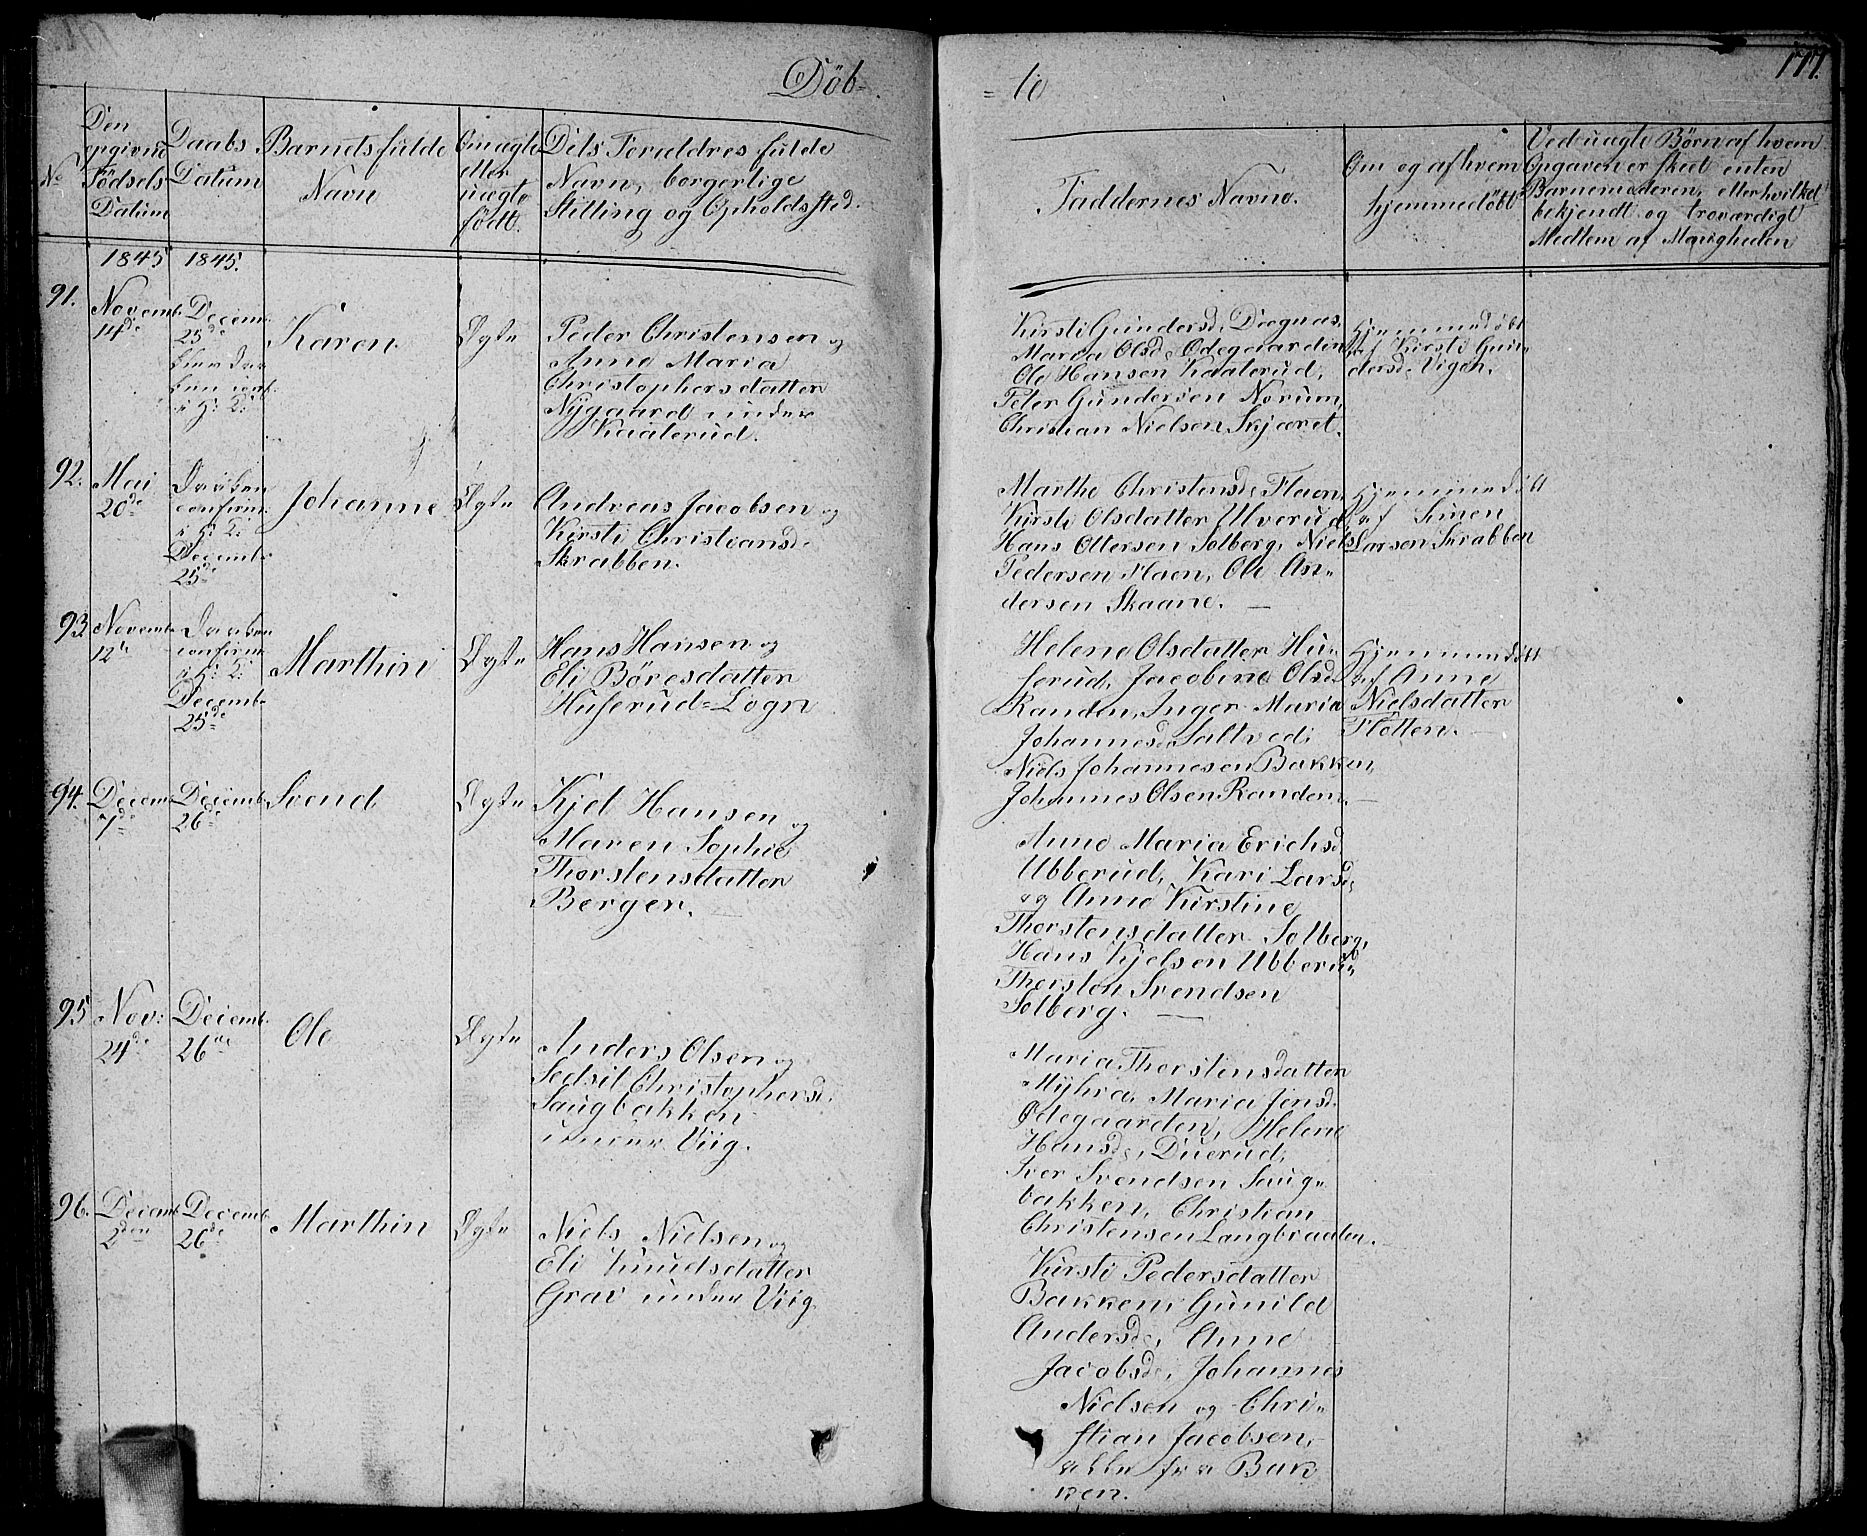 Döb=
= te
177.
No
Den
opgivne
Födsels
Datum
Daabs
Datum
Barnets fulde
Navn
Om ægte
eller
uægte
födt.
Dets Forældres fulde
Navn, borgerlige
Stilling og Opholdssted.
Faddernes Navne.
Om og af hvem
hjemmedöbt
Ved uægte Börn af hvem
Opgaven er skeet enten
Barnemoderen, eller hvilket
bekjendt og troværdigt
Medlem af Menigheden
1845 1845.
91.
Novemb.
14de
Decemb.
25de
i H: K:
Karen.
Ægte
Peder Christensen og
Anne Maria
Christophersdatter
Nygaard under
Kaalerud.
Kirsti Gundersd.
Maria Olsd. Ödegaarden
Ole Hansen Kaalerud,
Peter Gundersen Norum,
Christian Nielsen Skjæret.
Hjemmedöbt
af Kirsti Gun=
dersd. Vigen.
92.
Mai
20de
Daaben
confirm.
i H: K:
Decemb.
25de
Johanne
Ægte
Andreas Jacobsen og
Kirsti Christiansd.
Skrabben.
Marthe Christensd. Flaen,
Kirsti Olsdatter Ulverud,
Hans Ottersen Solberg, Niels
Pedersen Flaen, Ole An=
dersen Skaane. —
Hjemmedöbt
af Simen
Larsen Skrabben
93
Novemb.
12te
Daaben
confirm.
i H: K:
Decemb.
25de
Marthin
Ægte
Hans Hansen og
Eli Böresdatter
Huserud=Logn
Helene Olsdatter Hu=
serud, Jacobine Olsd.
Randen, Inger Maria
Johannesd. Saltved,
Niels Johannesen Bakken,
Johannes Olsen Randen. —
Hjemmedöbt
af Anne
Nielsdatter
Flotten. —
94.
Decemb.
7de
Decemb.
26de
Svend
Ægte
Kjel Hansen og
Maren Sophie
Thorstensdatter
Bergen. —
Anne Maria Erichsd
Ubberud, Kari Larsd.
og Anne Kirstine
Thorstensdatter Solberg,
Hans Kjelsen Ubberud
Thorsten Svendsen
Solberg. —
95
Nov:
24de
Decemb.
26de
Ole
Ægte
Anders Olsen og
Sedsil Christophersd.
Saugbakken
under Viig.
Maria Thorstensdatter
Myhra, Maria Jensd.
Ödegaarden, Helene
Hansd., Duerud,
Iver Svendsen Saug=
bakken, Christian
Christensen Langbraaten. —
96.
Decemb
2den
Decemb.
26de
Marthin
Ægte
Niels Nielsen og
Eli Knudsdatter
Grav under Viig.
Kirsti Pedersdatter
Bakken, Gunild
Andersd., Anne
Jacobsd., Johannes
Nielsen og Chri=
stian Jacobsen,
alle fra Bak
ken.